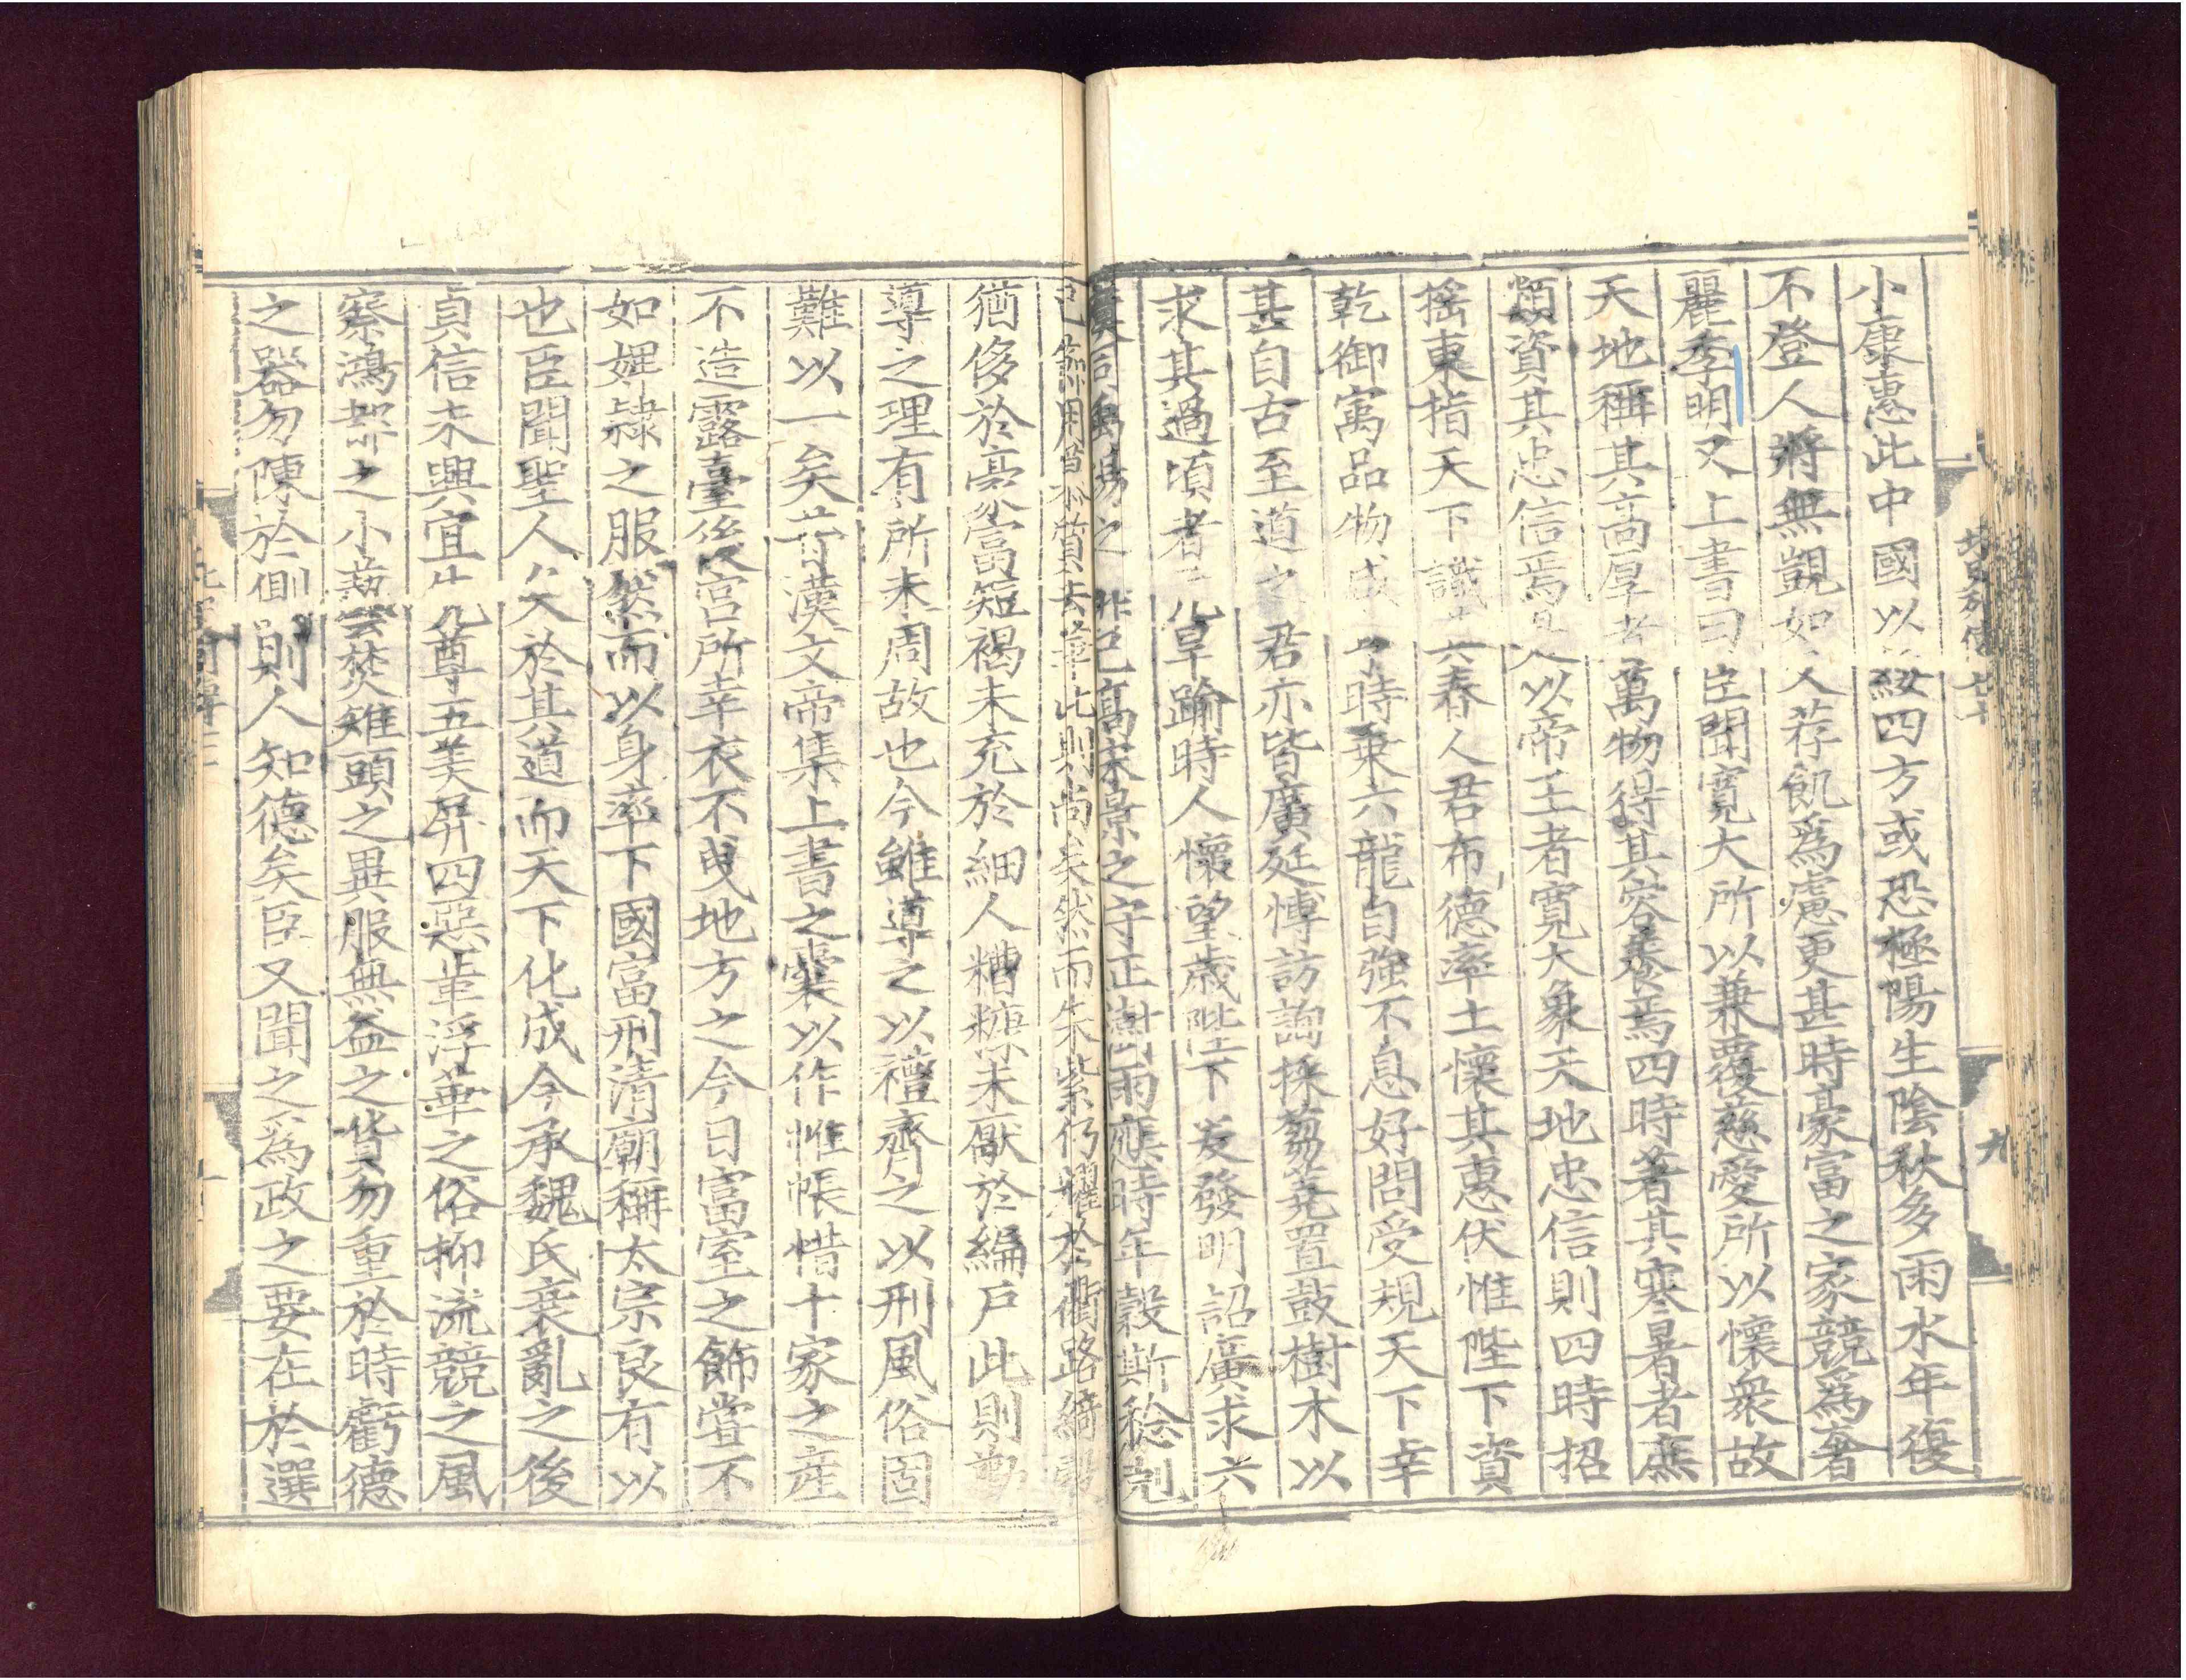 小康惠此中國以綏四方或恐極陽生陰秋多雨水年復
不登人將無覬如又荐飢爲慮更甚時豪富之家競爲奢
麗季明又上書曰臣聞寬大所以兼覆慈愛所以懷衆故
天地稱其高厚者萬物得其容養焉四時著其寒暑者庶
類資其忠信焉是以帝王者寬大象天地忠信則四時招
搖東指天下識其春人君布德率土懷其惠伏惟陛下資
乾御寓品物咸亨時乗六龍自強不息好問受規天下幸
甚自古至道之君亦皆廣延博訪詢採芻蕘置鼓樹木以
求其過頃者亢旱踰時人懷望歳陛下爰發明詔廣求六
同禹湯之罪己高宋景之守正澍雨應時年穀斯稔剋
己節用質去華此則尚矣然而朱紫仍耀於衢路綺
猶侈於豪富短褐未充於細人糟糠未厭於編戶此則勸
導之理有所未周故也今雖導之以禮齊之以刑風俗固
難以一矣昔漢文帝集上書之囊以作帷帳惜十家之産
不造露臺後宮所幸衣不曵地方之今日富室之飾嘗不
如婢隷之服然而以身率下國富刑清廟稱太宗良有以
也臣聞聖人久於其道而天下化成今承魏氏衰亂之後
貞信未興宜先尊五美屏四惡革浮華之俗抑流競之風
察鴻都之小藝焚雉頭之異服無益之貨勿重於時虧德
之器勿陳於側則人知德矣臣又聞之爲政之要在於選